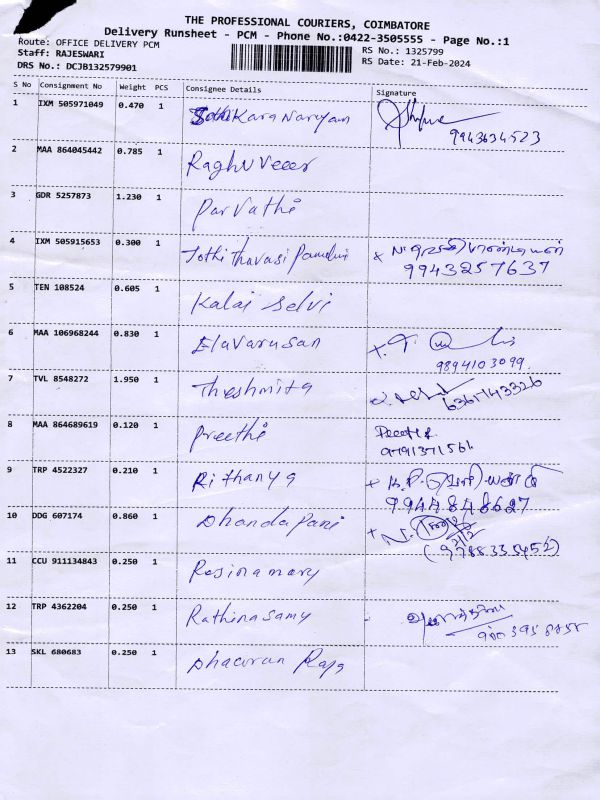 THE PROFESSIONAL COURIERS, COIMBATORE
Delivery Runsheet - PCM - Phone No.:0422-3505555 - Page No.:1
Route: OFFICE DELIVERY PCM
RS No.: 1325799
Staff: RAJESWARI
RS Date: 21-Feb-2024
DRS No.: DCJB132579901
S No Consignment No Weight PCS Consignee Details Signature
1 IXM 505971049 0.470 1 Karanarayam
9943634523
2 MAA 864045442 0.785 1 Raghuveer
3 GDR 5257873 1.230 1 Parvathi
4 IXM 505915653 0.300 1 Jothi Thavasi
9943257637
5 TEN 108524 0.605 1 Kalai Selvi
6 MAA 106968244 0.830 1 Elavarusan
9894103099
7 TVL 8548272 1.950 1 Theshmita
6361743326
8 MAA 864689619 0.120 1 Preethi
9791371561
9 TRP 4522327 0.210 1 Rithanya
9944848627
10 DDG 607174 0.860 1 Dhandapani
(9788335452)
11 CCU 911134843 0.250 1 Rosinamary
12 TRP 4362204 0.250 1 Rathinasamy
13 SKL 680683 0.250 1 Raja